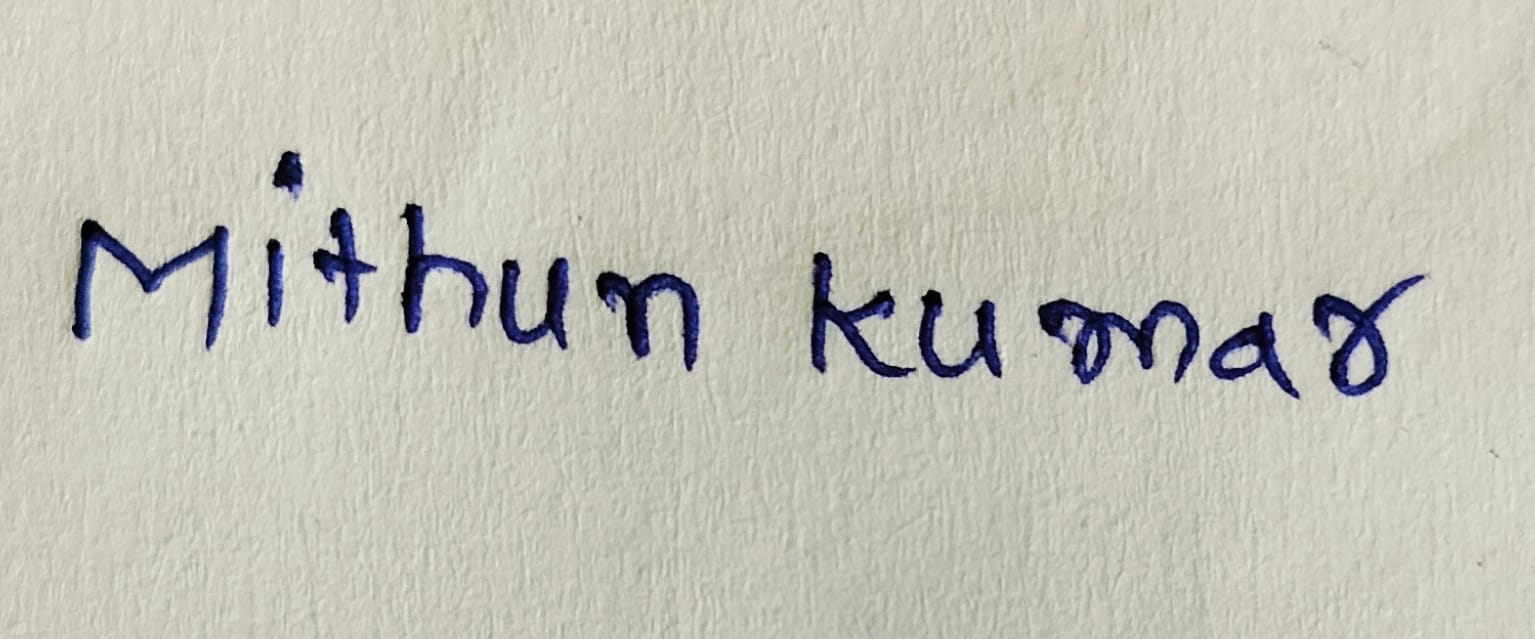 Mithun kumar